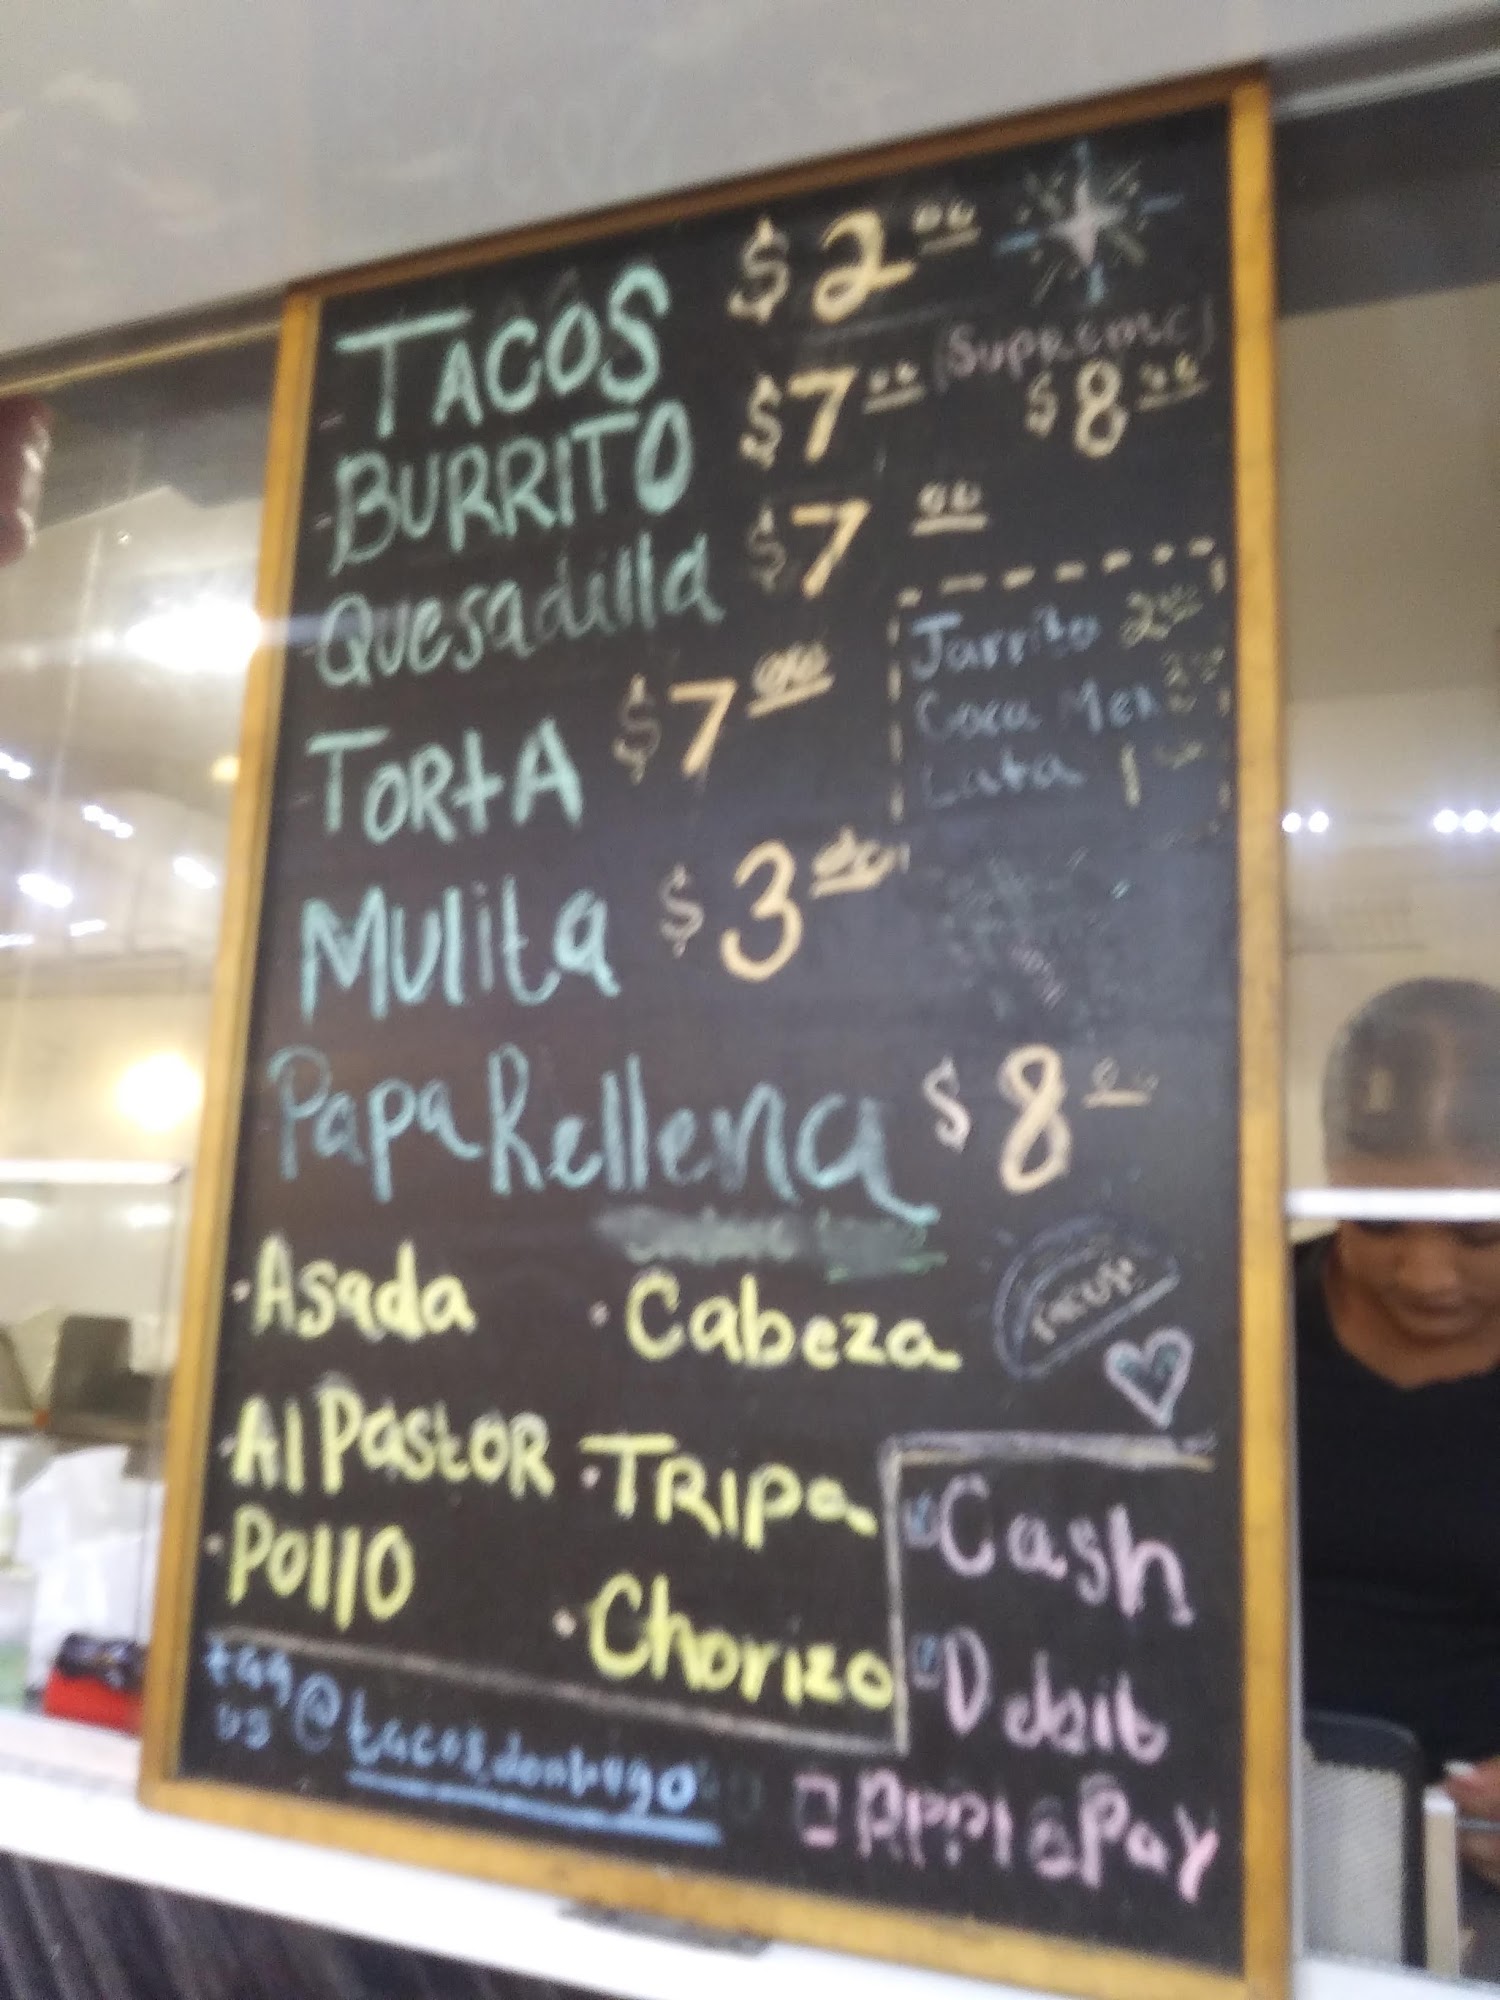 TACOS $2.00
(Supreme)
BURRITO $7.00 $8.00
Quesadilla $7.00
Jarrito 2.00
Coca Mex
Lata 1
TORTA $7.00
Mulita $3.00
Papa Rellena $8.00
Asada
Cabeza
Al PASTOR
TRIPa
Pollo
Chorizo
Cash
Debit
Apple Pay
tag us @tacos.donhugo